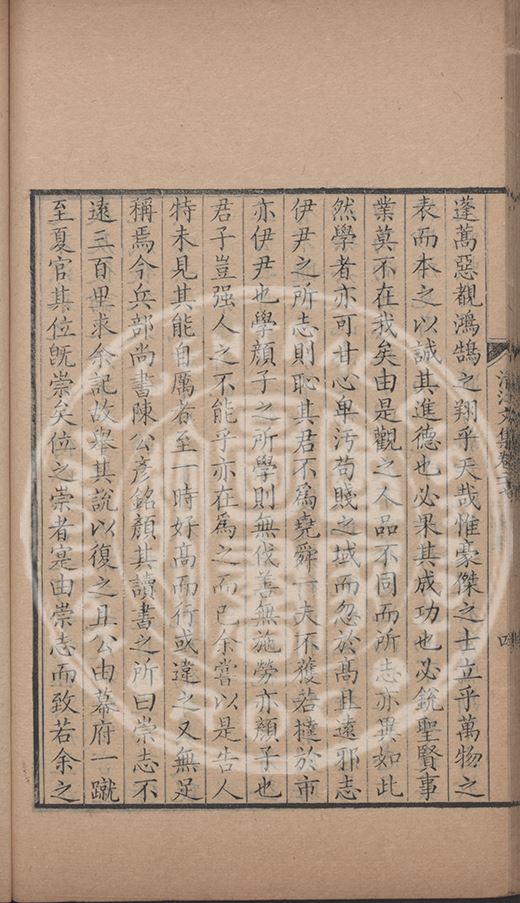 蓬蒿惡覩鴻鵠之翔乎天哉惟豪傑之士立乎萬物之
表而本之以誠其進德也必果其成功也必銳聖賢事
業莫不在我矣由是觀之人品不同而所志亦異如此
然學者亦可甘心卑汚苟賤之域而忽於髙且遠邪志
伊尹之所志則恥其君不爲堯舜一夫不獲若撻於市
亦伊尹也學顔子之所學則無伐善無施勞亦顔子也
君子豈强人之不能乎亦在爲之而已余嘗以是告人
特未見其能自厲者至一時好髙而行或違之又無足
稱焉今兵部尚書陳公彦銘顔其讀書之所曰崇志不
遠三百里求余記故舉其說以復之且公由幕府一蹴
至夏官其位旣崇矣位之崇者寔由崇志而致若余之